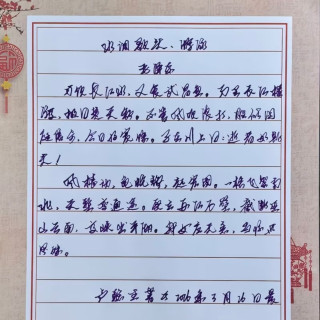 水调歌头·游泳
毛泽东
才饮长沙水,又食武昌鱼。万里长江横
渡,极目楚天舒。不管风吹浪打,胜似闲
庭信步,今日得宽馀。子在川上曰:逝者如斯
夫!
风樯动,龟蛇静,起宏图。一桥飞架南
北,天堑变通途。更立西江石壁,截断巫
山云雨,高峡出平湖。神女应无恙,当惊世
界殊。
月 日晨